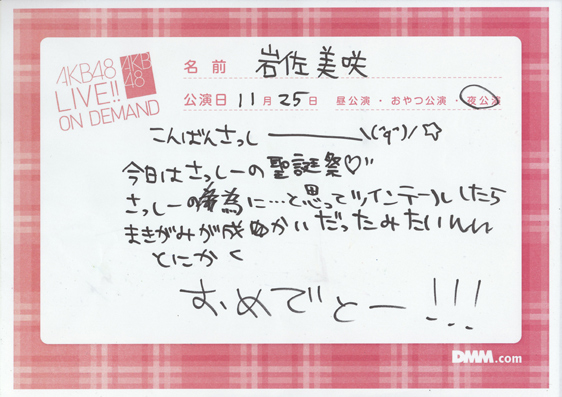 AKB48
LIVE!!
ON DEMAND
AKB
48
名前 岩佐美咲
公演日 11月25日 昼公演・おやつ公演・夜公演
こんばんさっしーーーー\(°q°)/☆
今日はさっしーの聖誕祭♡"
さっしーの為に…と思ってツインテールしたら
まきがみが成めかいだったみたいんんん
とにかく
おめでとー!!!
DMM.com